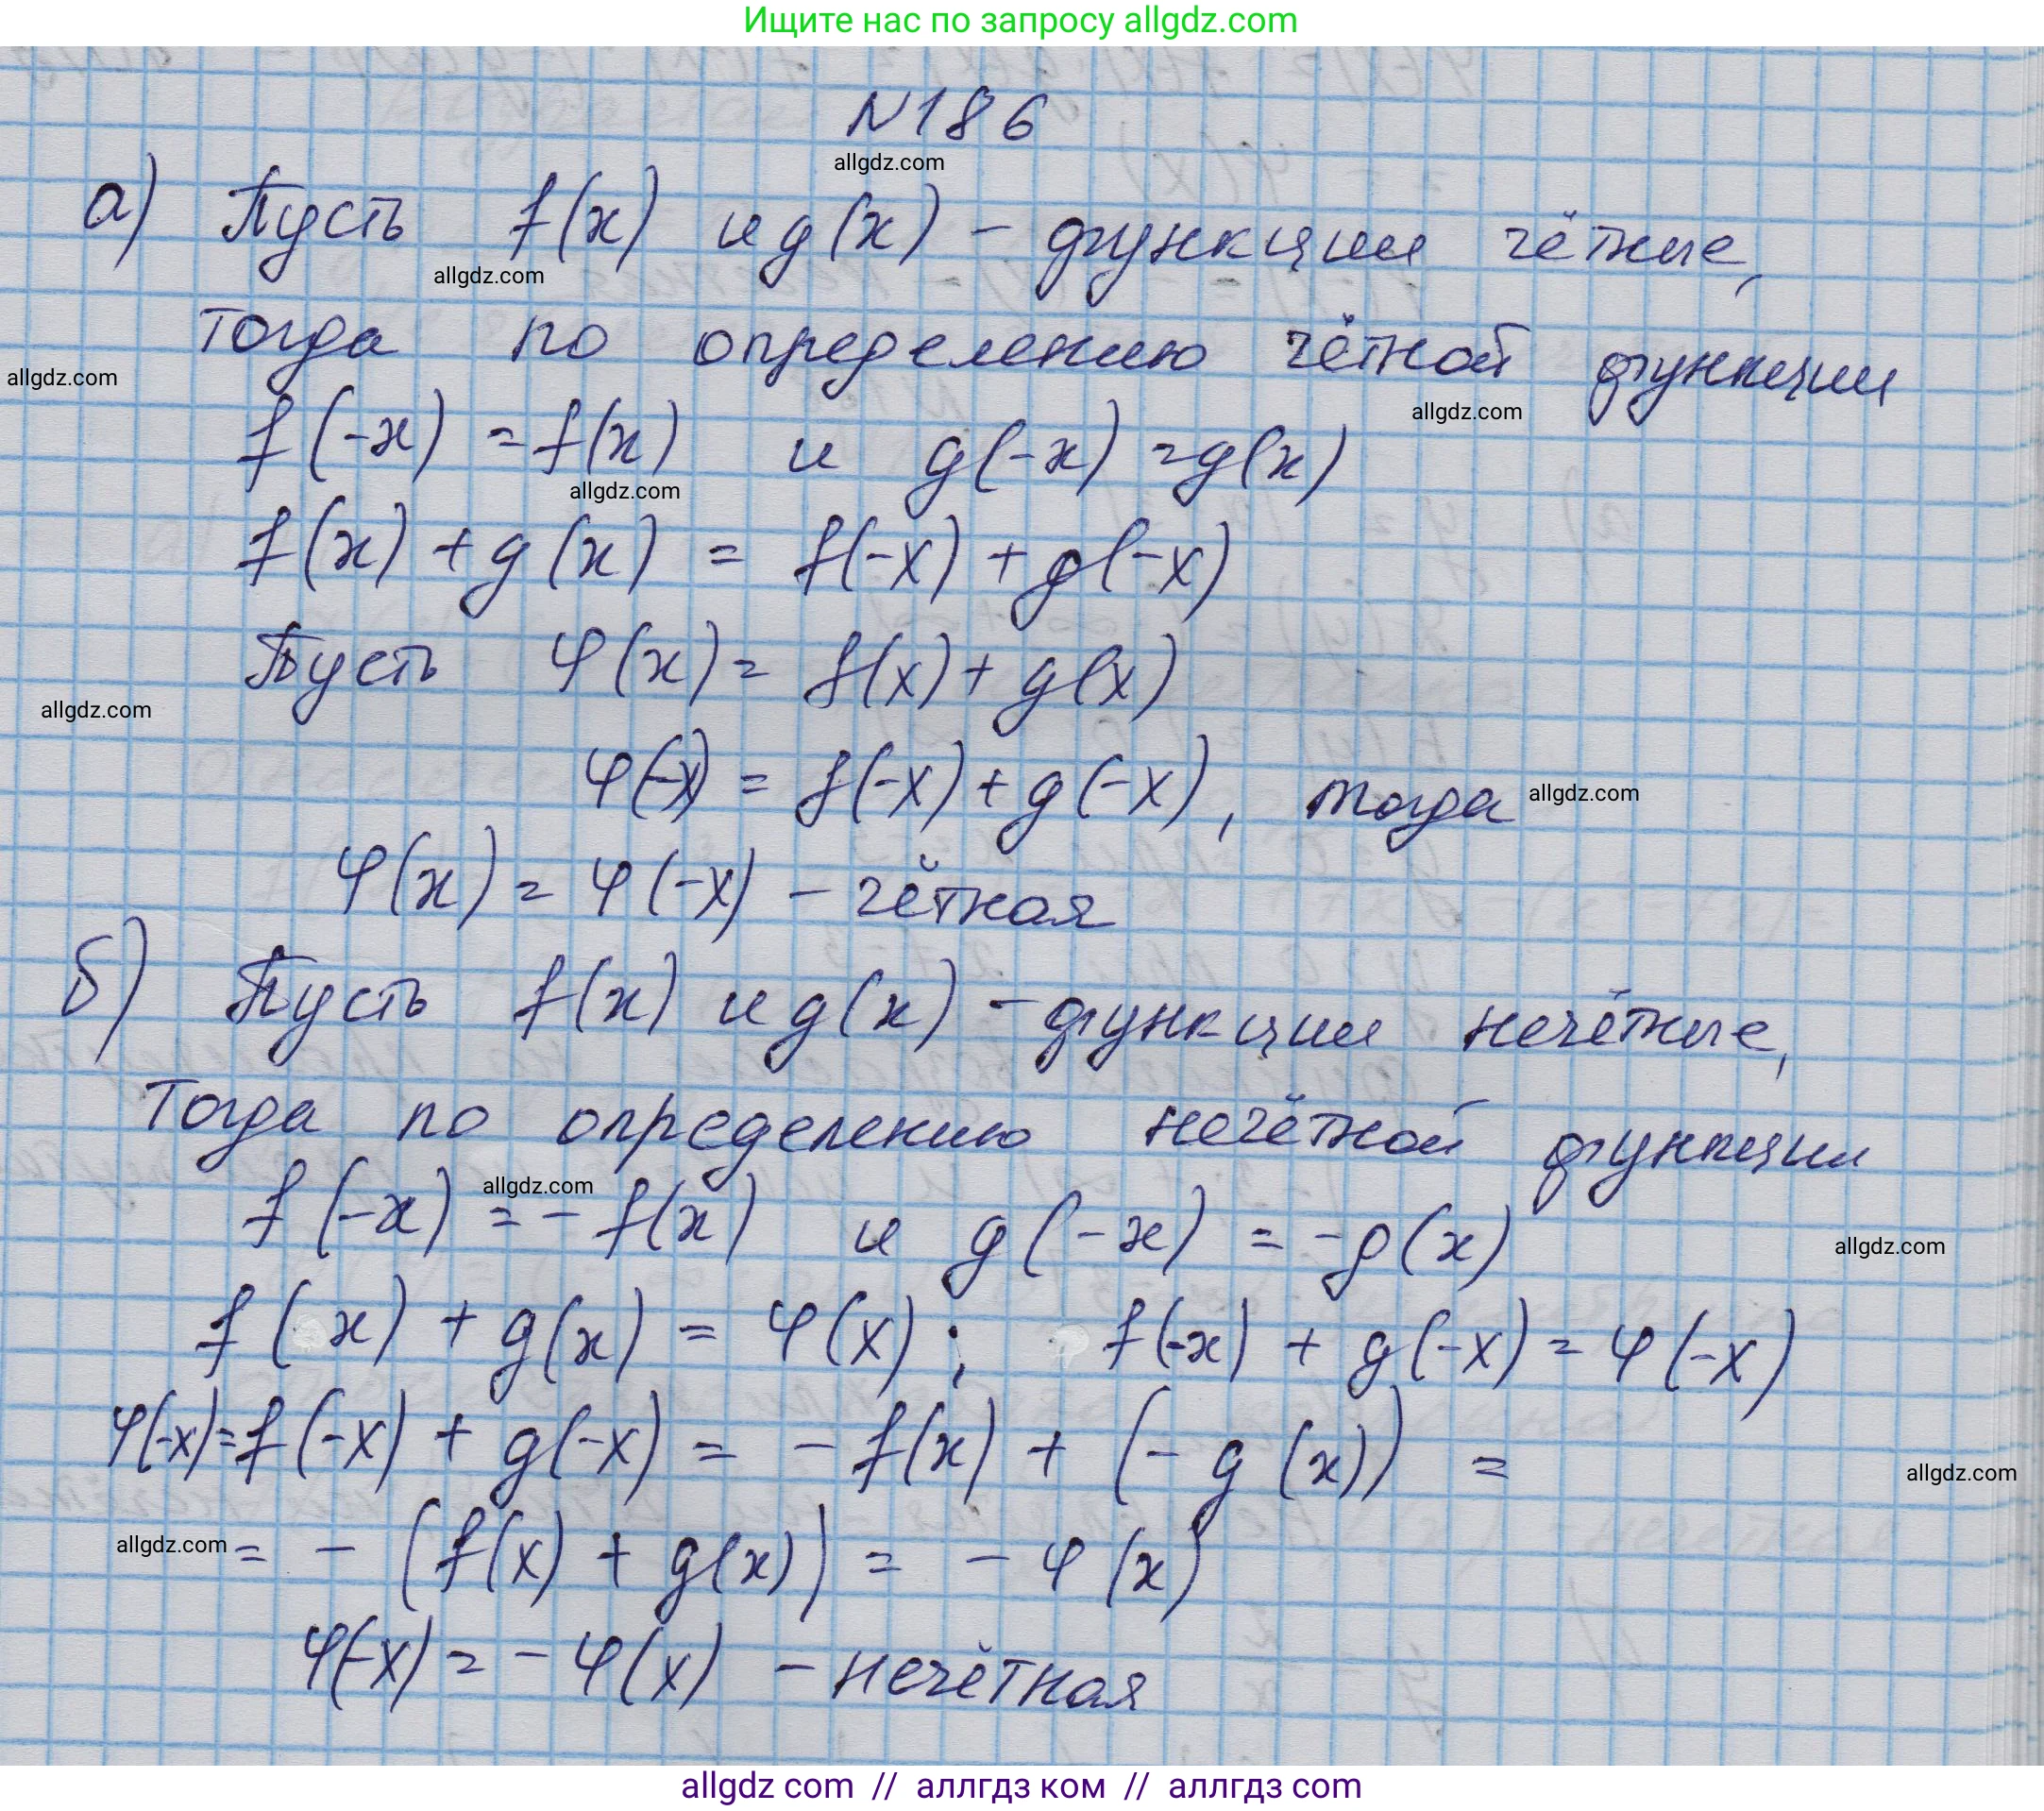 Ищите нас по запросу allgdz.com
N186
allgdz.com
а) Пусть f(x) и g(x) - функции чётные,
allgdz.com
тогда по определению чётной функции
allgdz.com
allgdz.com
f(-x) = f(x) и g(-x) = g(x)
allgdz.com
f(x) + g(x) = f(-x) + g(-x)
Пусть φ(x) = f(x) + g(x)
allgdz.com
φ(-x) = f(-x) + g(-x), тогда
allgdz.com
φ(x) = φ(-x) - чётная
б) Пусть f(x) и g(x) - функции нечётные,
Тогда по определению нечётной функции
allgdz.com
f(-x) = - f(x) и g(-x) = -g(x)
allgdz.com
f(x) + g(x) = φ(x); f(-x) + g(-x) = φ(-x)
φ(-x) = f(-x) + g(-x) = - f(x) + (- g(x)) =
allgdz.com
allgdz.com
= - (f(x) + g(x)) = - φ(x)
φ(-x) = - φ(x) - нечётная
allgdz com // аллгдз ком // аллгдз com